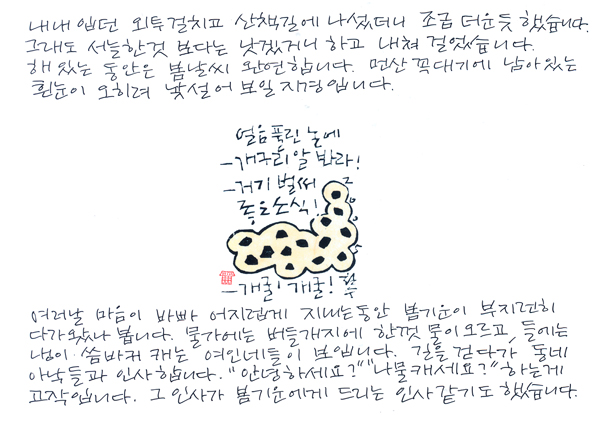 내내 입던 외투 걸치고 산책길에 나섰더니 조금 더운듯 했습니다.
그래도 서늘한것 보다는 낫겠거니 하고 내쳐 걸었습니다.
해 있는 동안은 봄날씨 완연합니다. 먼산 꼭대기에 남아있는
흰눈이 오히려 낯설어 보일 지경입니다.
얼음 풀린 논에
-개구리 알 봐라!
-거기 벌써
좋은 소식!
-개굴! 개굴! 철수
여러날 마음이 바빠 어지럽게 지내는동안 봄기운이 부지런히
다가왔나 봅니다. 물가에는 버들개지에 한껏 물이오르고, 들에는
냉이·씀바귀 캐는 여인네들이 보입니다. 길을 걷다가 동네
아낙들과 인사합니다. "안녕하세요?" "나물캐세요?" 하는게
고작입니다. 그 인사가 봄기운에게 드리는 인사 같기도 했습니다.